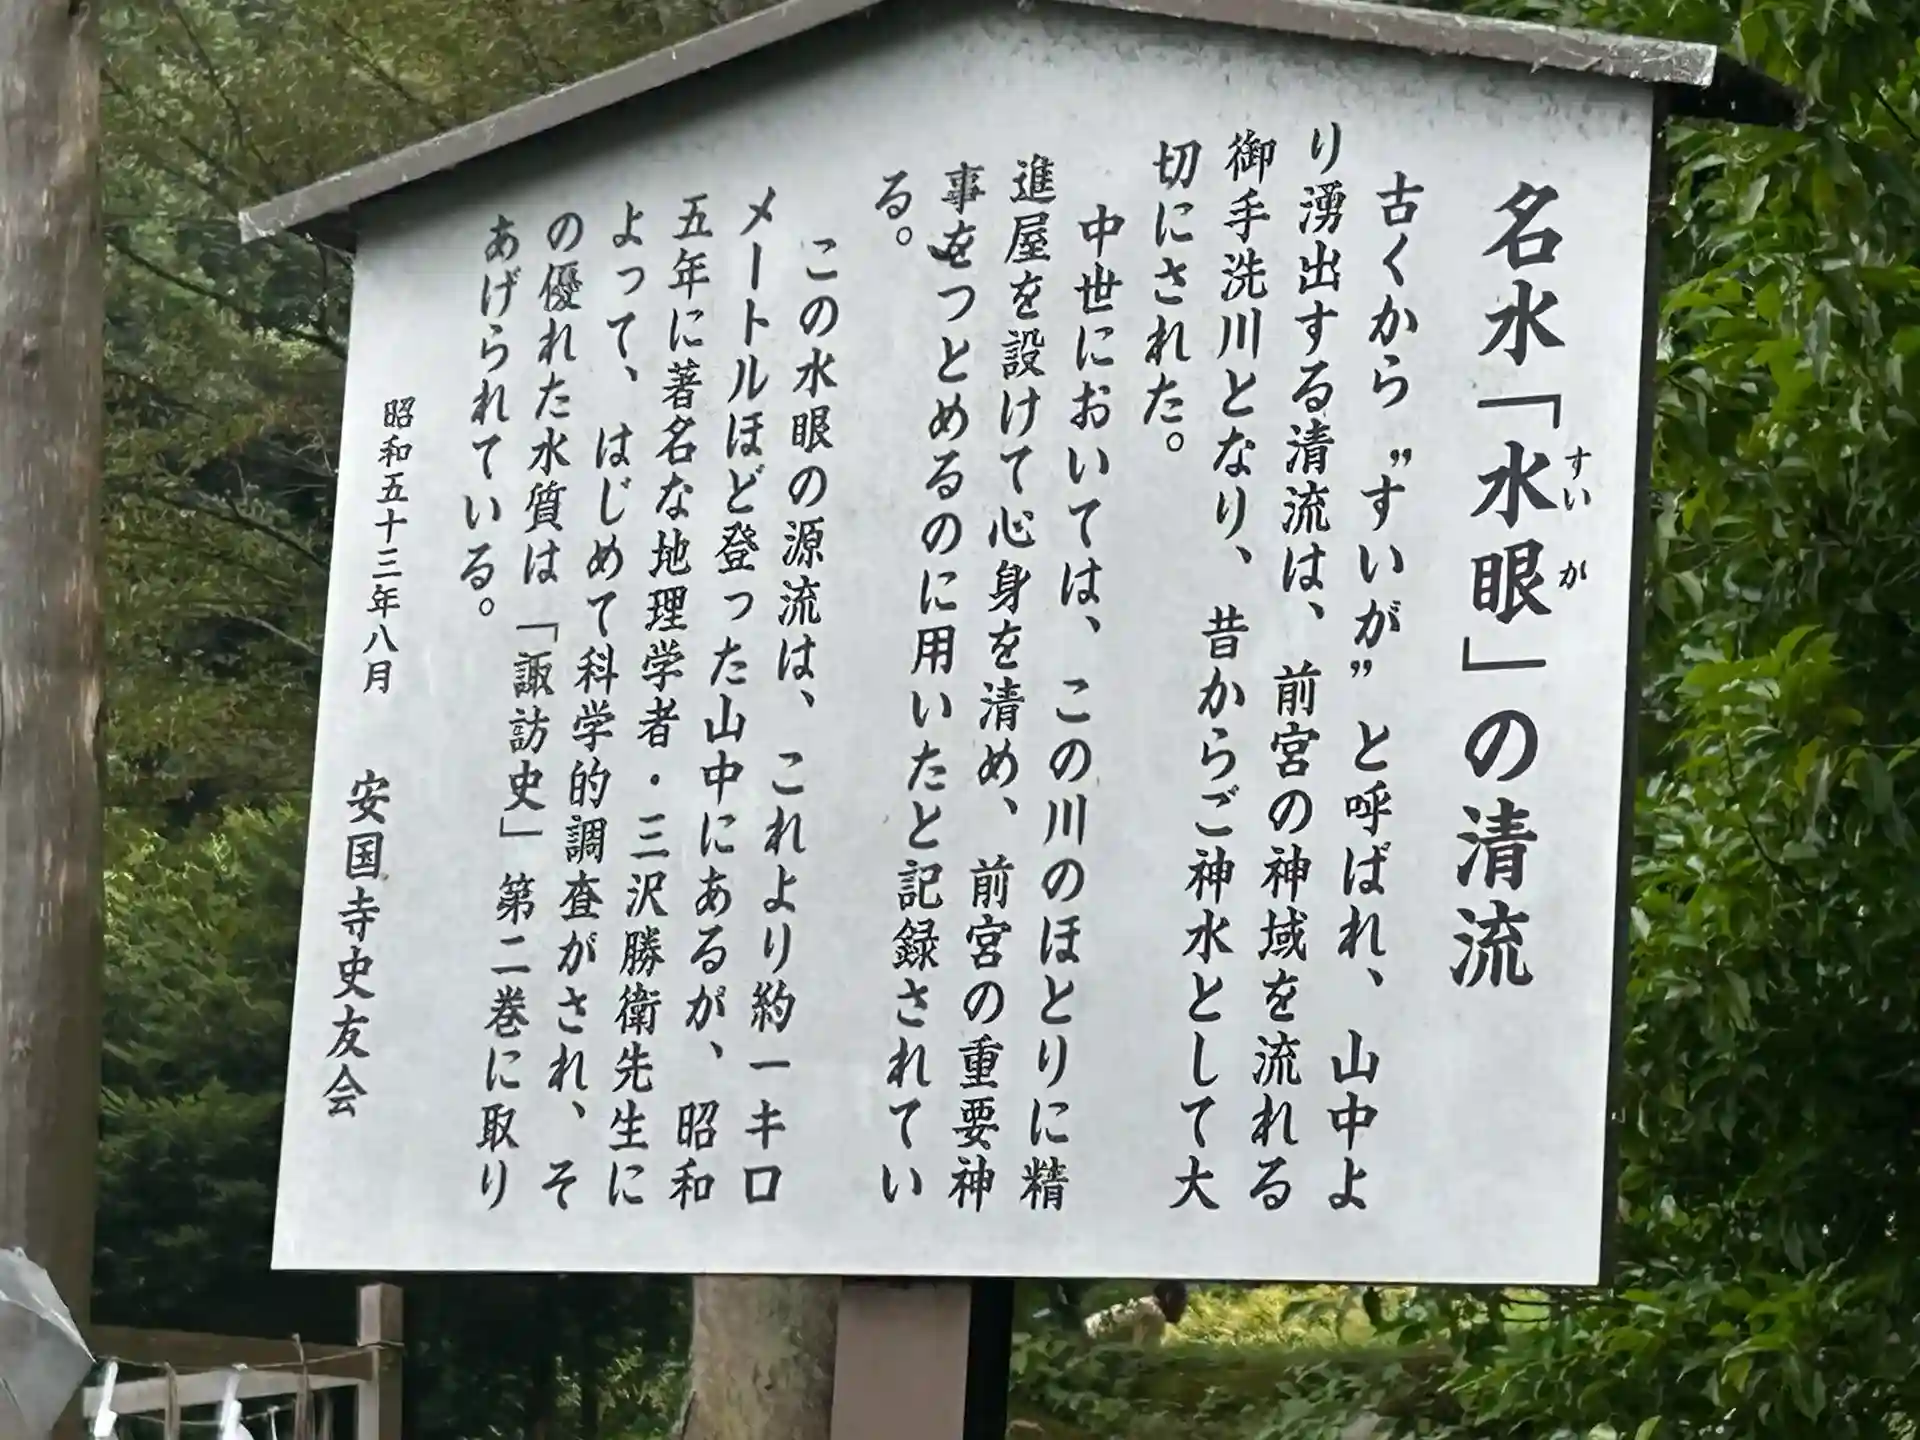 名水「水眼」の清流
すいが
古くから〝すいが〟と呼ばれ、山中よ
り湧出する清流は、前宮の神域を流れる
御手洗川となり、昔からご神水として大
切にされた。
中世においては、この川のほとりに精
進屋を設けて心身を清め、前宮の重要神
事をつとめるのに用いたと記録されてい
る。
この水眼の源流は、これより約一キロ
メートルほど登った山中にあるが、昭和
五年に著名な地理学者・三沢勝衛先生に
よって、はじめて科学的調査がされ、そ
の優れた水質は「諏訪史」第二巻に取り
あげられている。
昭和五十三年八月 安国寺史友会